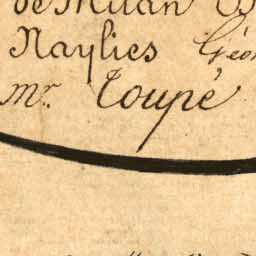 de Milan
Naylies Géo
mr. Toupé